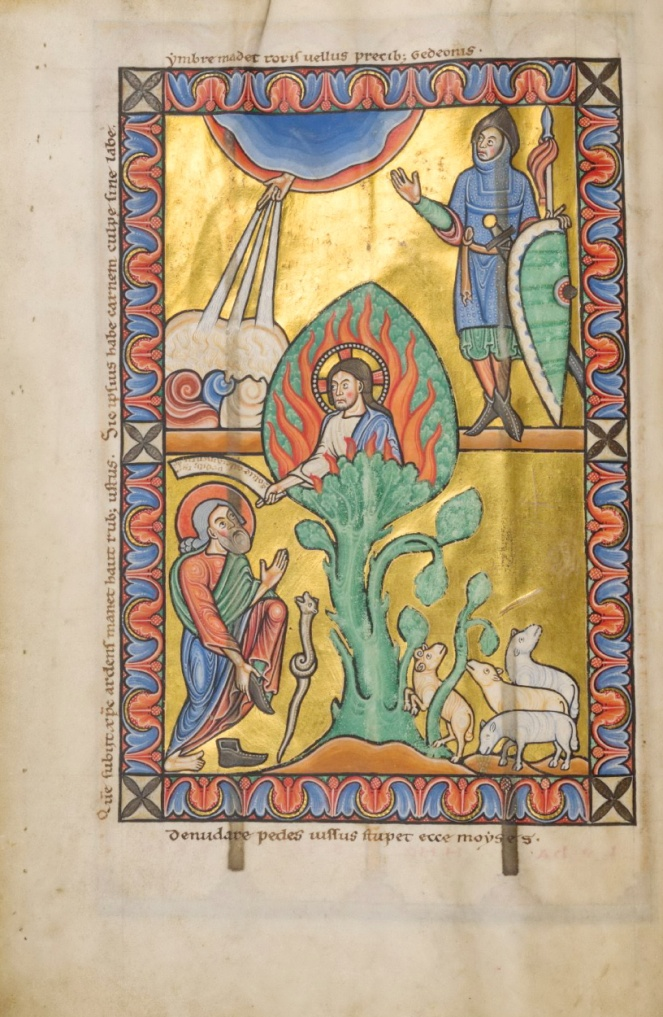 ymbre madet roris uellus precib; Gedeonis.
Quē subiit xp̄e ardens manet haut rub; ustus. Sic ipsius habe carnem culpe sine labe.
Denudare pedes iussus stupet ecce moyses.